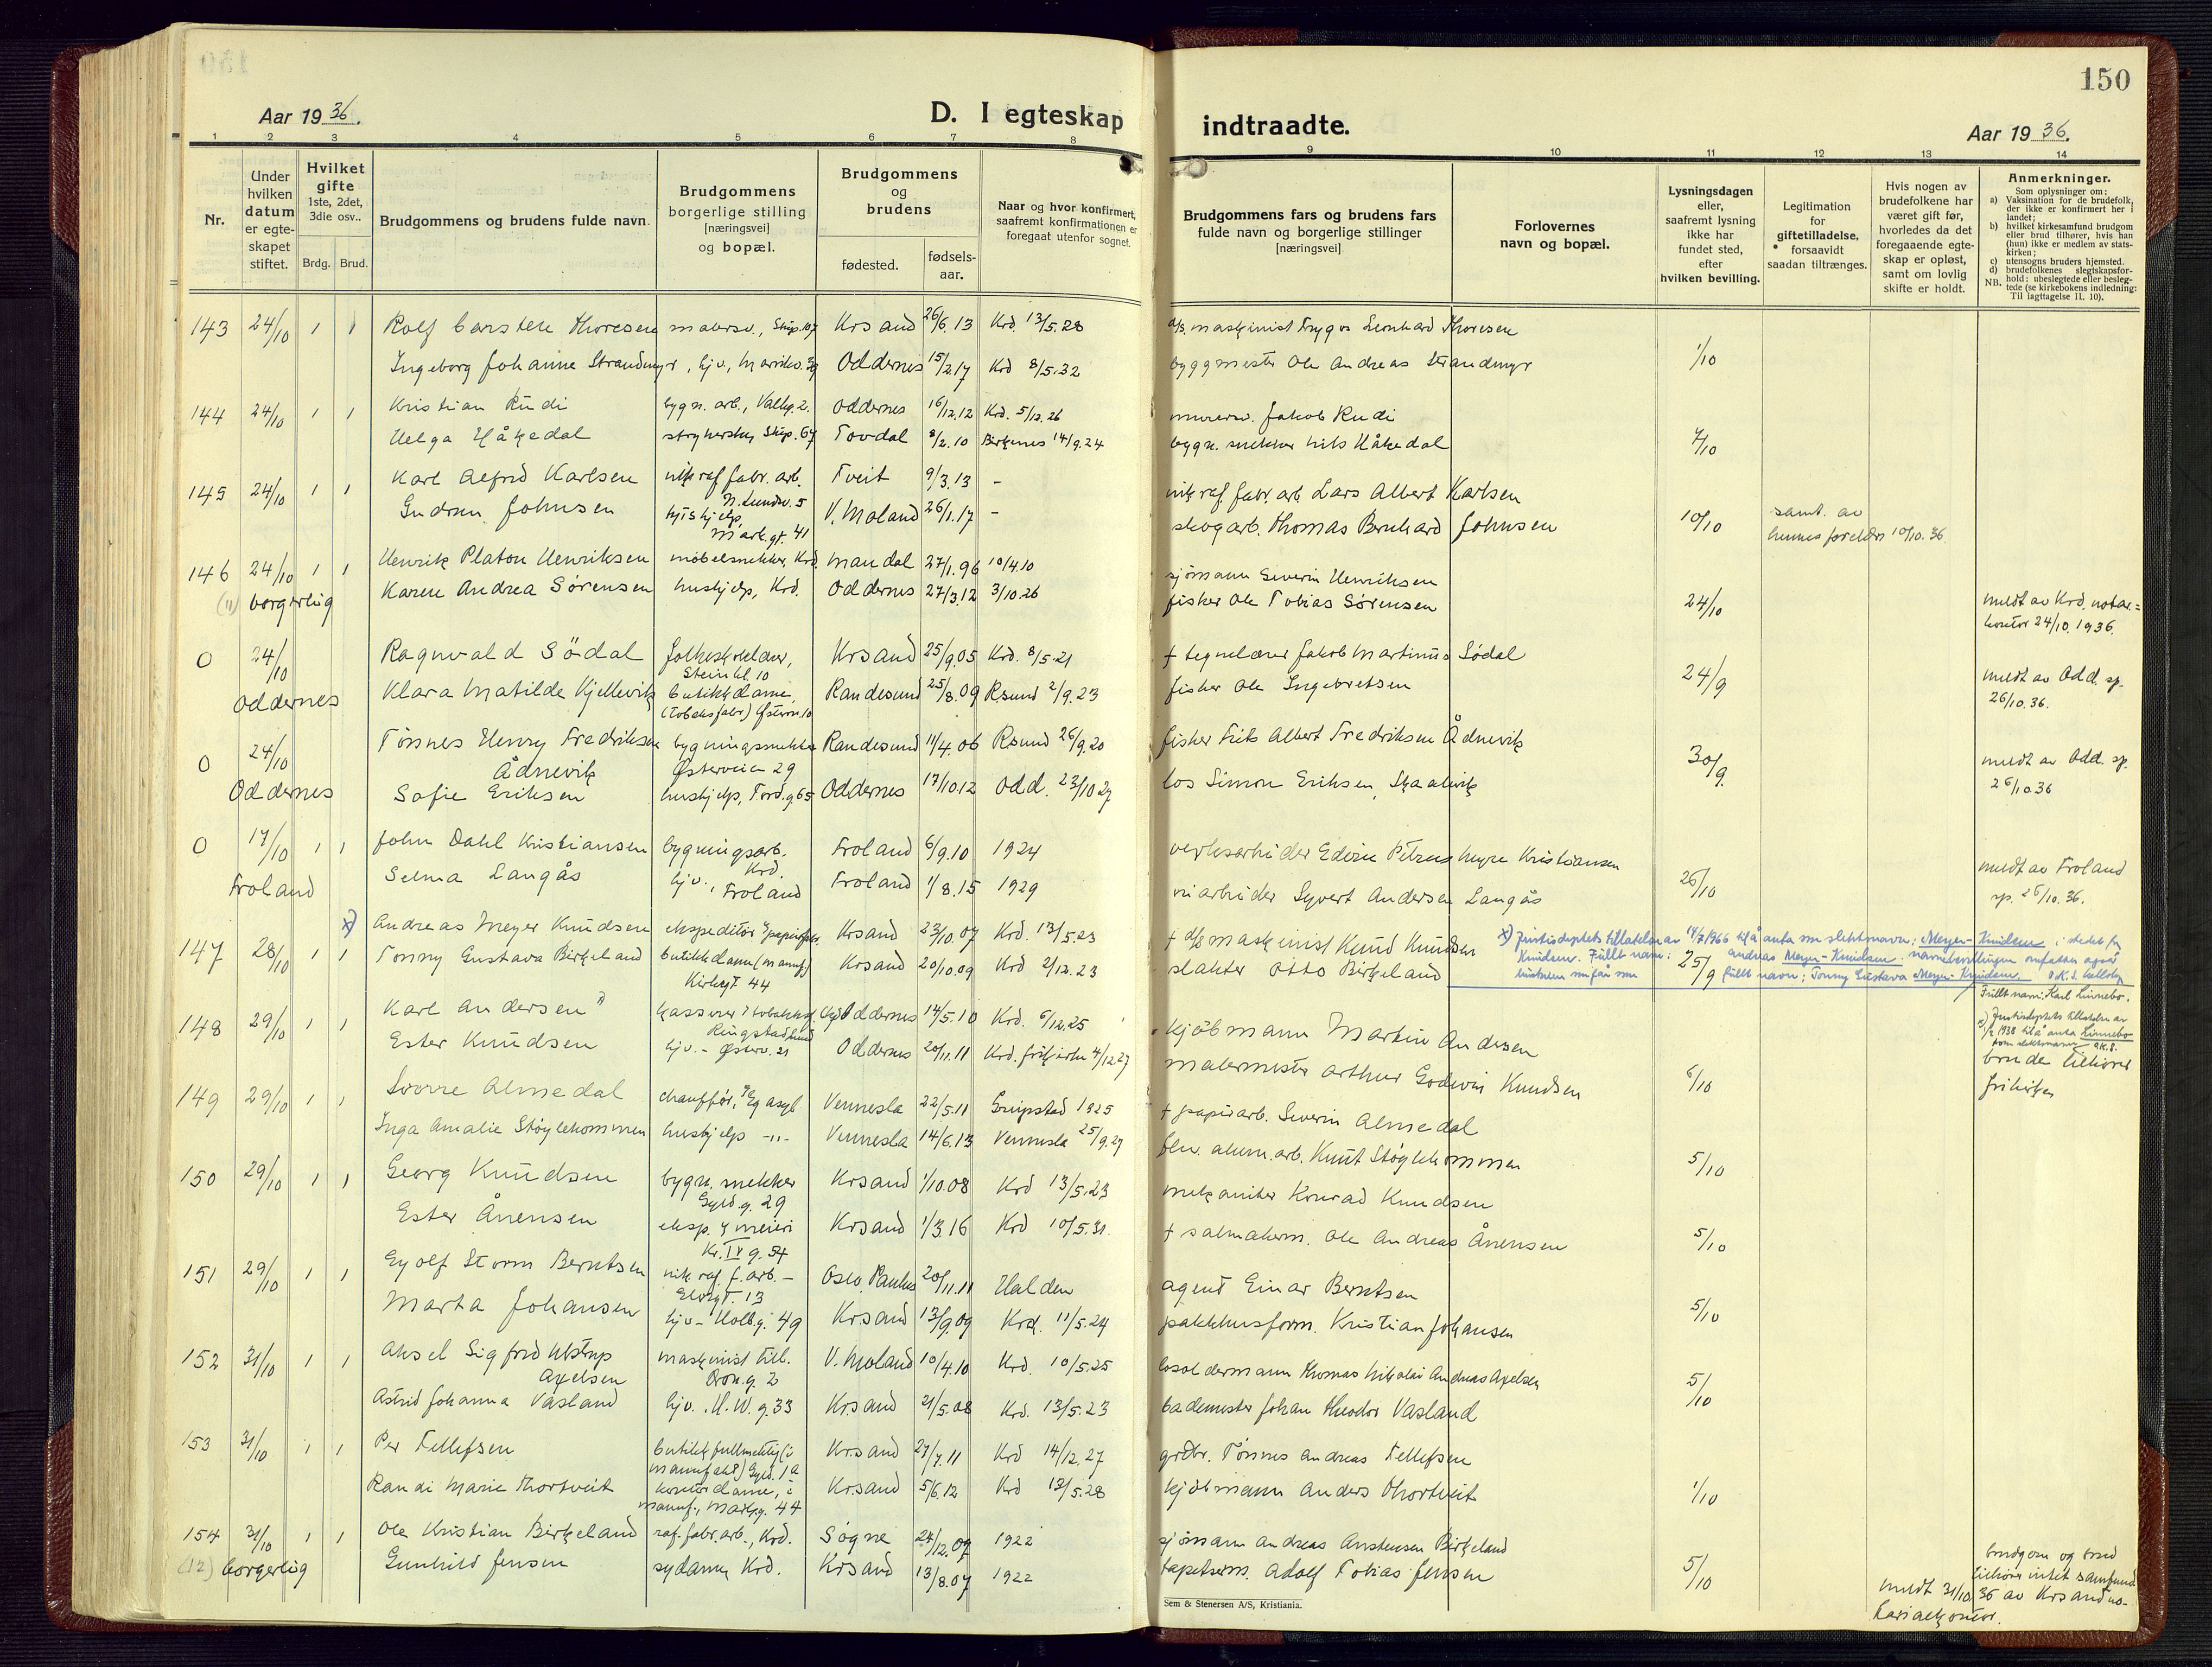 150
Aar 1936.
D. I egteskap indtraadte.
Aar 1936.
1 2 3 4 5 6 7 8 9 10 11 12 13 14
Nr.
Under hvilken datum er egte-skapet stiftet.
Hvilket gifte 1ste, 2det, 3die osv..
Brdg. Brud.
Brudgommens og brudens fulde navn.
Brudgommens borgerlige stilling [næringsvei] og bopæl.
Brudgommens og brudens
fødested. fødsels-aar.
Naar og hvor konfirmert, saafremt konfirmationen er foregaat utenfor sognet.
Brudgommens fars og brudens fars fulde navn og borgerlige stillinger [næringsvei]
Forlovernes navn og bopæl.
Lysningsdagen eller, saafremt lysning ikke har fundet sted, efter hvilken bevilling.
Legitimation for giftetilladelse, forsaavidt saadan tiltrænges.
Hvis nogen av brudefolkene har været gift før, hvorledes da det foregaaende egte-skap er opløst, samt om lovlig skifte er holdt.
Anmerkninger.
Som oplysninger om:
a) Vaksination for de brudefolk, der ikke er konfirmert her i landet;
b) hvilket kirkesamfund brudgom eller brud tilhører, hvis han (hun) ikke er medlem av stats-kirken;
c) utensogns bruders hjemsted.
d) brudefolkenes slegtskapsfor-hold: ubeslegtede eller besleg-tede (se kirkebokens indledning: Til iagttagelse II. 10).
NB.
143 24/10 1 1 Rolf Carsten Thoresen malersv., Skip. 107 Krsand 26/6.13 Krd. 13/5.28 d/s. maskinist Trygve Leonhard Thoresen
Ingeborg Johanne Strandmyr, hjv., Marviksv. 39 Oddernes 15/2.17 Krd 8/5.32 byggmester Ole Andreas Strandmyr 1/10
144 24/10 1 1 Kristian Rudi bygn. arb., Valhg. 2. Oddernes 16/12.12 Krd. 5/12.26 murersv. Jakob Rudi
Helga Håkedal strykerske, Skip. 67 Tovdal 8/2.10 Birkenes 14/9.24 bygn. snekker Nils Håkedal 7/10
145 24/10 1 1 Karl Alfred Karlsen nik raf fabr. arb. N. Lundsv. 5 Tveit 9/3.13 - nik raf. fabr. arb Lars Albert Karlsen
Gudrun Johnsen hushjelp, Mark.gt. 41 V. Moland 26/1.17 - skogarb. Thomas Bernhard Johnsen 10/10 samt. av hennes foreldre 10/10.36
146 24/10 1 1 Henrik Platon Henriksen møbelsnekker, Krd. Mandal 27/1.96 10/4.10 sjømann Severin Henriksen
(11) borgerlig Karen Andrea Sørensen hushjelp, Krd. Oddernes 27/3.12 3/10.26 fisker Ole Tobias Sørensen 24/10 meldt av Krd. notar.=kontor 24/10.1936.
0 24/10 Ragnvald Södal folkeskolelærer, Steinkl 10 Krsand 25/9.05 Krd. 8/5.21 + tegnelærer Jakob Martinus Södal
Oddernes Klara Matilde Kjellevik butikkdame (tobaksfabr) Østerv. 10 Randesund 25/8.09 Rsund 2/9.23 fisker Ole Ingebretsen 24/9 meldt av Odd. sp. 26/10.36.
0 24/10 Tönnes Henry Fredriksen Ådnevik bygningssnekker Østerveien 29 Randesund 11/4.06 Rsund 26/9.20 fisker Frits Albert Fredriksen Ådnevik
Oddernes Sofie Eriksen hushjelp, Tord.g. 65 Oddernes 17/10.12 Odd. 23/10 27 los Simon Eriksen, Skaalevik 30/9. meldt av Odd. sp. 26/10.36
0 17/10 1 1 John Dahl Kristiansen bygningsarb. Krd. Froland 6/9.10 1924 verksarbeider Edvin Petrus Kristiansen
Froland Selma Langås hjv., Froland Froland 1/8.15 1929 veiarbeider Syvert Andersen Langås 26/10 meldt av Froland sp. 26/10.36.
147 28/10 1 1 x) Andreas Meyer Knudsen ekspeditör Krsand 23/10.07 Krd. 13/5.23 + d/s maskinist Knud Knudsen
Tonny Gustava Birkeland butikkdame (manuf) Kirkegt 44 Krsand 20/10.09 Krd 2/12.23 slakter Otto Birkeland 25/9
x) Justisdeptets tillatelse av 14/7 1966 til å anta som slektsnavn: Meyer-Knudsen i stedet for Knudsen. Fullt navn: Andreas Meyer-Knudsen. navneendringen omfatter også hustruen som får som fullt navn: Tonny Gustava Meyer-Knudsen.
148 29/10 1 1 Karl Andersen x) kasserer Oddernes 14/5.10 Krd. 6/12.25 kjöbmann Martin Andersen
Ester Knudsen hjv. - Østerv. 21 Oddernes 20/11.11 Krd. frikirke 4/12.27 malermester Arthur Godwin Knudsen 6/10
Fullt navn: Karl Linnebo. x) Justisdeptets tillatelse av 1938 til å anta Linnebo som slektsnavn
bruden tilhører frikirken
149 29/10 1 1 Sverre Almedal chauffør, Eg asyl Vennesla 22/5.11 Gripstad 1925 + papirarb. Severin Almedal
Inga Amalie Stöylekommen hushjelp -"- Vennesla 14/6.13 Vennesla 25/9.27 alum. arb. Knut Stöylekommen 5/10
150 29/10 1 1 Georg Knudsen bygn. snekker Gyld.g. 29 Krsand 1/10.08 Krd 13/5.23 mekaniker Konrad Knudsen
Ester Ånensen eksp. meieri Kr. IV g. 54 Krsand 1/3.16 Krd 10/5.31. + salmakerm. Ole Andreas Ånensen 5/10
151 29/10 1 1 Eyolf Storm Berntsen nik raf. f. arb. - Elvegt. 13 Oslo, Paulus 20/11.11 Halden agent Einar Berntsen
Marta Johansen hjv - Holb.g. 49 Krsand 13/9.09 Krd. 11/5.24 pakkhusform. Kristian Johansen 5/10
152 31/10 1 1 Aksel Sigfred Ulstrup Axelsen maskinist till. Dron.g. 2 V. Moland 10/4.10 Krd. 10/5.25 losoldermann Thomas Nikolai Andreas Axelsen
Astrid Johanna Vasland hjv. H.W.g. 33 Krsand 21/5.08 Krd. 13/5.23 bademester Johan Theodor Vasland 5/10
153 31/10 1 1 Per Tellefsen butikkfullmektig (i manufakt) Gyld. 1a Krsand 27/7.11 Krd 14/12.27 grdbr. Tönnes Andreas Tellefsen
Randi Marie Thortveit kontordame, i manuf., Markg. 44 Krsand 5/6.12 Krd 13/5.28 kjöbmann Anders Thortveit 1/10
154 31/10 1 1 Ole Kristian Birkeland raf. fabr. arb., Krd. Søgne 24/12.09 1922 sjömann Andreas Anstensen Birkeland
(12) borgerlig Gunhild Jensen sydame, Krd. Krsand 13/8.07 1922 tapetserm. Adolf Tobias Jensen 5/10
brudgom og brud tilhører intet samfund
meldt 31/10.36 av Krsand no-tarialkontor.
Sem & Stenersen A/S, Kristiania.